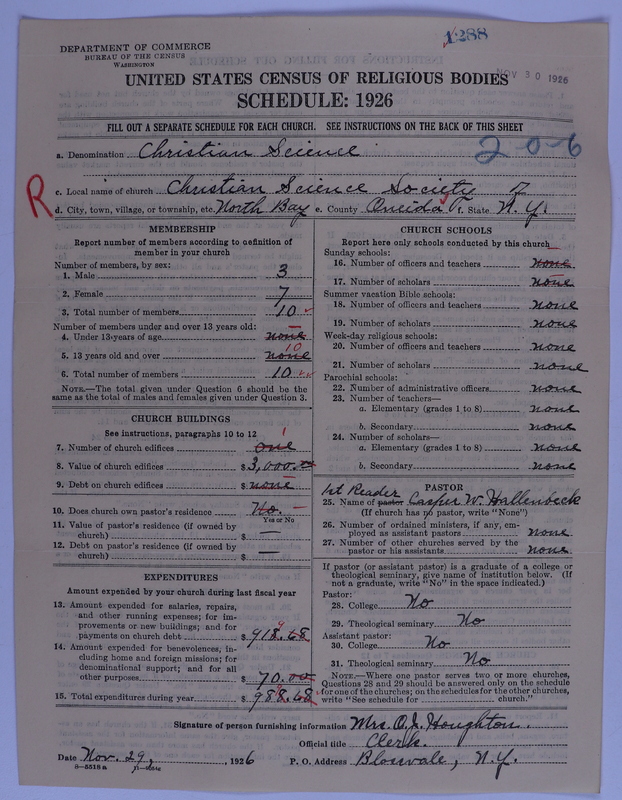 1288
DEPARTMENT OF COMMERCE
BUREAU OF THE CENSUS
WASHINGTON
NOV 30 1926
UNITED STATES CENSUS OF RELIGIOUS BODIES
SCHEDULE: 1926
FILL OUT A SEPARATE SCHEDULE FOR EACH CHURCH. SEE INSTRUCTIONS ON THE BACK OF THIS SHEET
a. Denomination Christian Science
2-0-6
R
c. Local name of church Christian Science Society
d. City, town, village, or township, etc. North Bay e. County Oneida f. State N.Y.
MEMBERSHIP
Report number of members according to definition of
member in your church
Number of members, by sex:
1. Male 3
2. Female 7
3. Total number of members 10
Number of members under and over 13 years old:
4. Under 13 years of age none
10
5. 13 years old and over none
6. Total number of members 10
NOTE.—The total given under Question 6 should be the
same as the total of males and females given under Question 3.
CHURCH BUILDINGS
See instructions, paragraphs 10 to 12
1
7. Number of church edifices one
8. Value of church edifices $3,000.00
9. Debt on church edifices $none
10. Does church own pastor's residence No.
Yes or No
11. Value of pastor's residence (if owned by
church) $ —
12. Debt on pastor's residence (if owned by
church) $ —
EXPENDITURES
Amount expended by your church during last fiscal year
13. Amount expended for salaries, repairs,
and other running expenses; for im-
provements or new buildings; and for
payments on church debt $918.68
9
14. Amount expended for benevolences, in-
cluding home and foreign missions; for
denominational support; and for all
other purposes $70.00
15. Total expenditures during year $988.68
CHURCH SCHOOLS
Report here only schools conducted by this church
Sunday schools:
16. Number of officers and teachers none
17. Number of scholars none
Summer vacation Bible schools:
18. Number of officers and teachers none
19. Number of scholars none
Week-day religious schools:
20. Number of officers and teachers none
21. Number of scholars none
Parochial schools:
22. Number of administrative officers none
23. Number of teachers—
a. Elementary (grades 1 to 8) none
b. Secondary none
24. Number of scholars—
a. Elementary (grades 1 to 8) none
b. Secondary none
PASTOR
1st Reader
25. Name of pastor Casper W. Hallenbeck
(If church has no pastor, write "None")
26. Number of ordained ministers, if any, em-
ployed as assistant pastors none
27. Number of other churches served by the
pastor or his assistants none
If pastor (or assistant pastor) is a graduate of a college or
theological seminary, give name of institution below. (If
not a graduate, write "No" in the space indicated.)
Pastor:
28. College No
29. Theological seminary No
Assistant pastor:
30. College No
31. Theological seminary No
NOTE.—Where one pastor serves two or more churches,
Questions 28 and 29 should be answered only on the schedule
for one of the churches; on the schedules for the other churches,
write "See schedule for church."
Signature of person furnishing information Mrs. O. J. Houghton.
Official title Clerk.
Date Nov. 29, , 1926 P. O. Address Blossvale, N.Y.
8-5518a